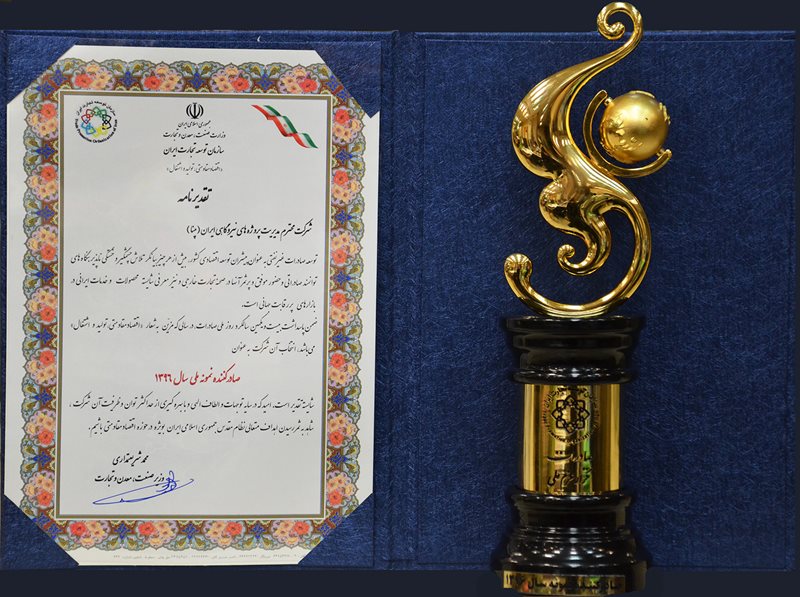 جمهوری اسلامی ایران
وزارت صنعت، معدن و تجارت
سازمان توسعه تجارت ایران
«اقتصاد مقاومتی؛ تولید و اشتغال»
تقدیرنامه
شرکت محترم مدیریت پروژه های نیروگاهی ایران (مپنا)
توسعه صادرات غیرنفتی به عنوان پیشران توسعه اقتصادی کشور، بیش از هر چیز بیانگر تلاش چشمگیر و خستگی ناپذیر بنگاه های
توانمند صادراتی و حضور موفق و پرثمر آنها در صحنه تجارت خارجی و نیز معرفی شایسته محصولات و خدمات ایرانی در
بازارهای پر رقابت جهانی است.
ضمن پاسداشت بیست و یکمین سالگرد روز ملی صادرات، در سالی که مزین به شعار «اقتصاد مقاومتی، تولید و اشتغال»
می باشد، انتخاب آن شرکت به عنوان
صادرکننده نمونه ملی سال ۱۳۹۶
شایسته تقدیر است. امید که در سایه توجهات و الطاف الهی و با بهره گیری از حداکثر توان و ظرفیت آن شرکت،
شاهد به ثمر رسیدن اهداف متعالی نظام مقدس جمهوری اسلامی ایران بویژه در حوزه اقتصاد مقاومتی باشیم.
محمد شریعتمداری
وزیر صنعت، معدن و تجارت
صادرکننده نمونه سال ۱۳۹۶